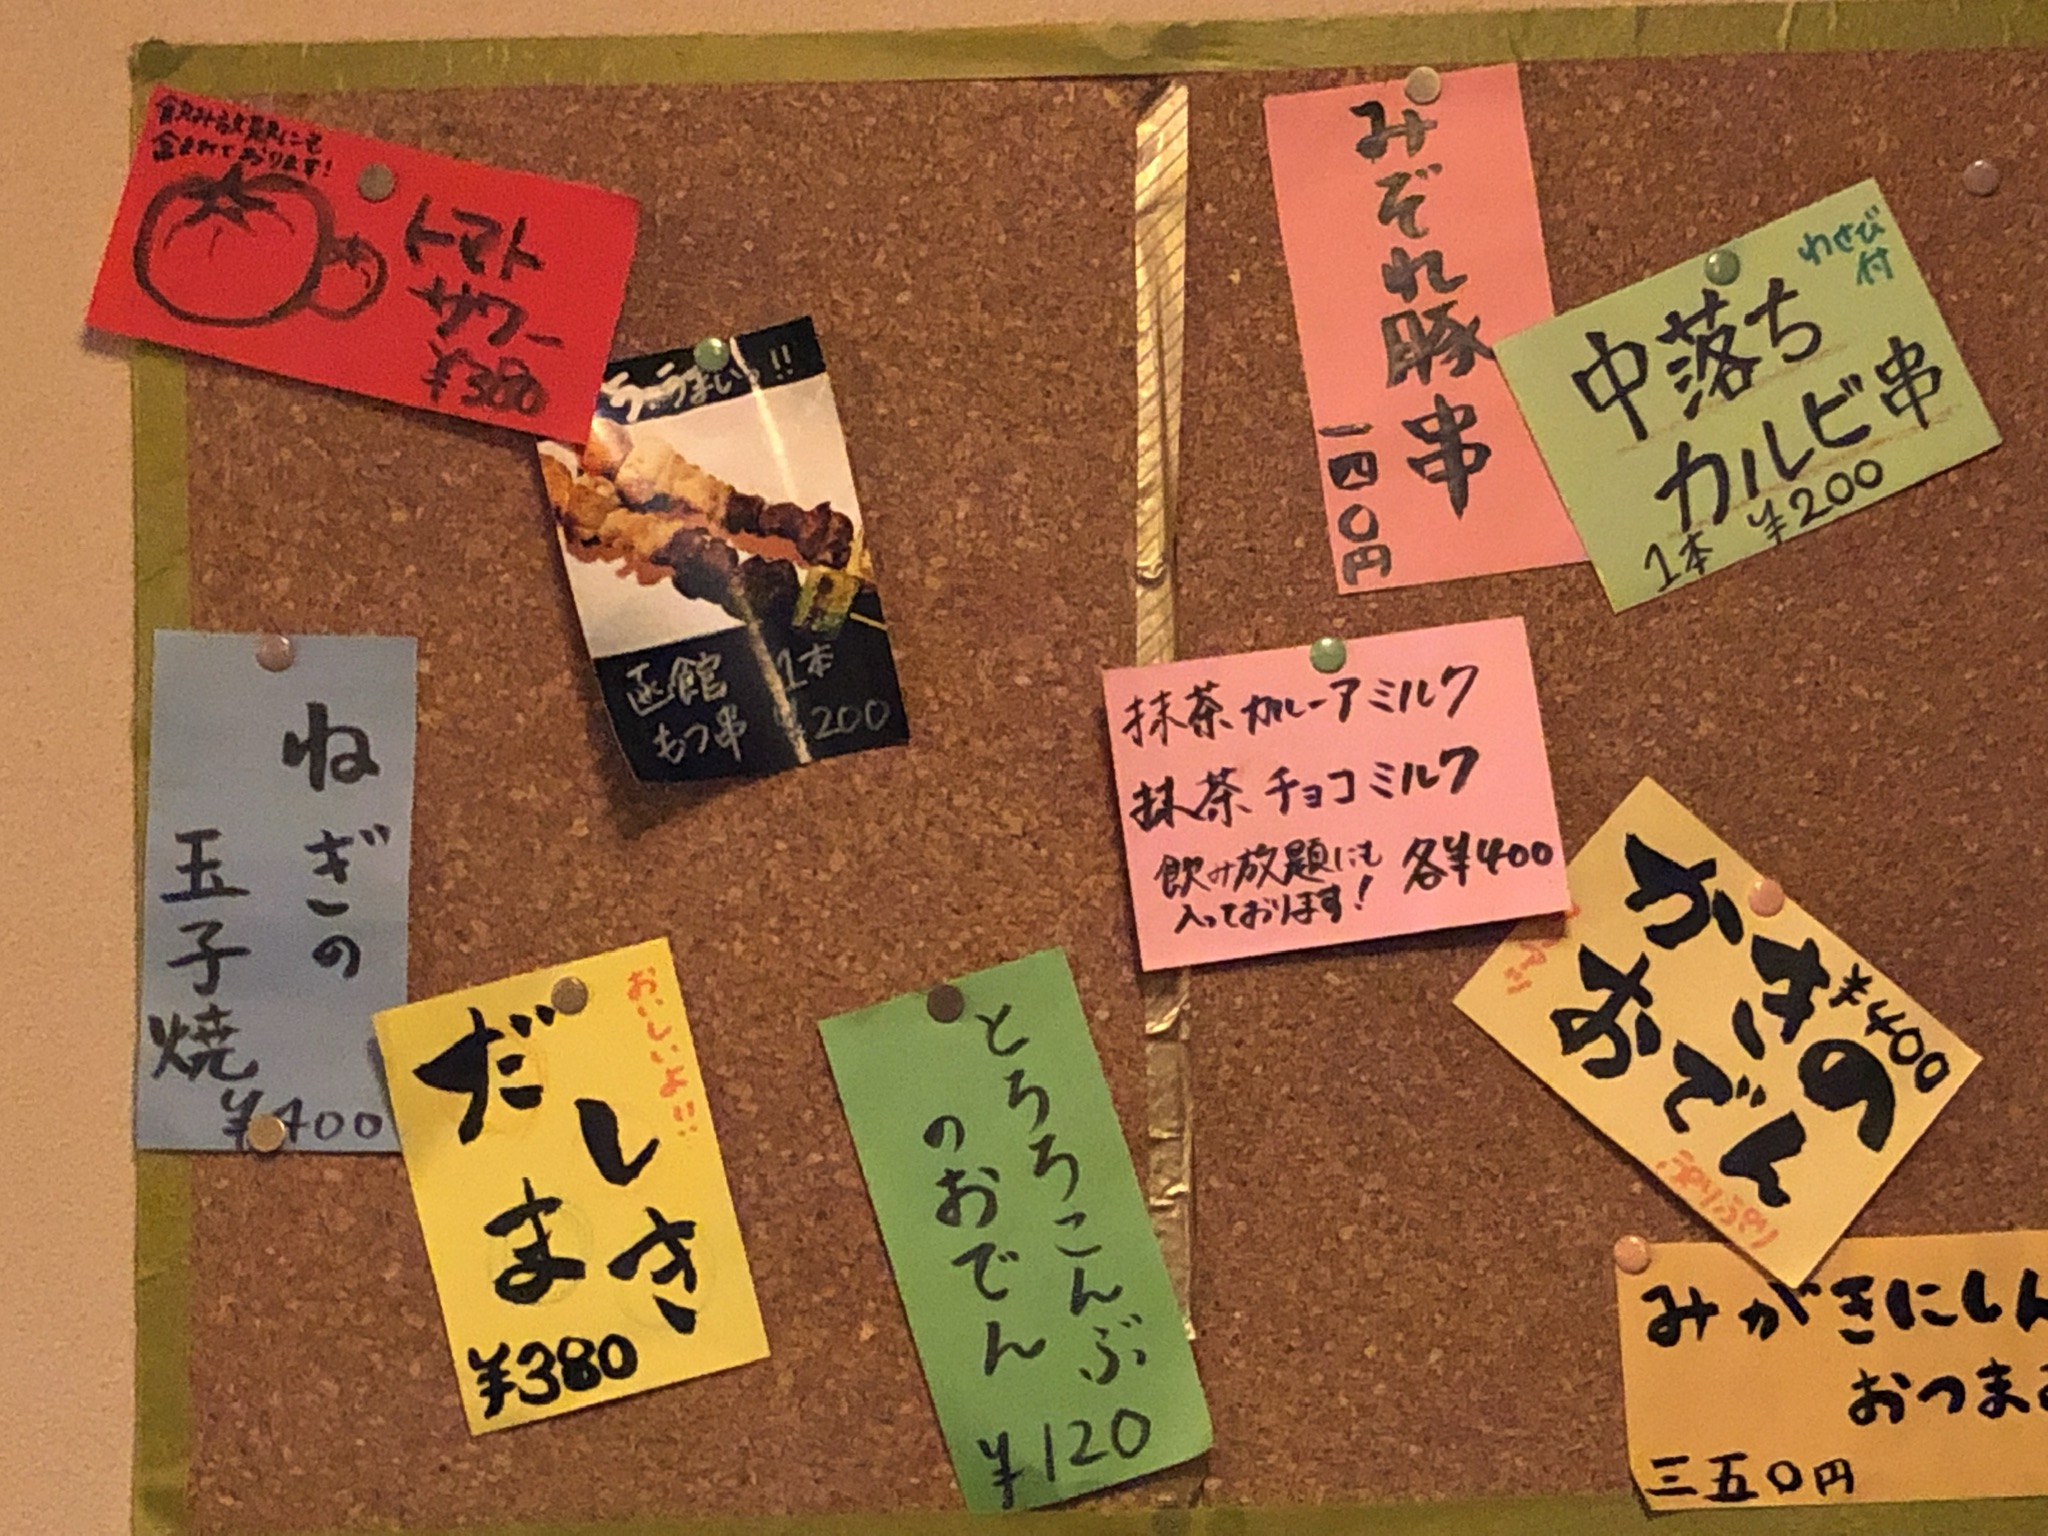 飲み放題にも
含まれております!
トマト
サワー
¥380
うまいっ!!
函館
もつ串
1本
¥200
みぞれ豚串
一四〇円
わさび
付
中落ち
カルビ串
1本 ¥200
ねぎの
玉子焼
¥400
抹茶カルーアミルク
抹茶チョコミルク
飲み放題にも
入っております!
各¥400
おいしいよ!!
だしまき
¥380
とろろこんぶ
のおでん
¥120
かきの
おでん
¥400
ぷりぷり
みがきにしん
おつま
三五〇円